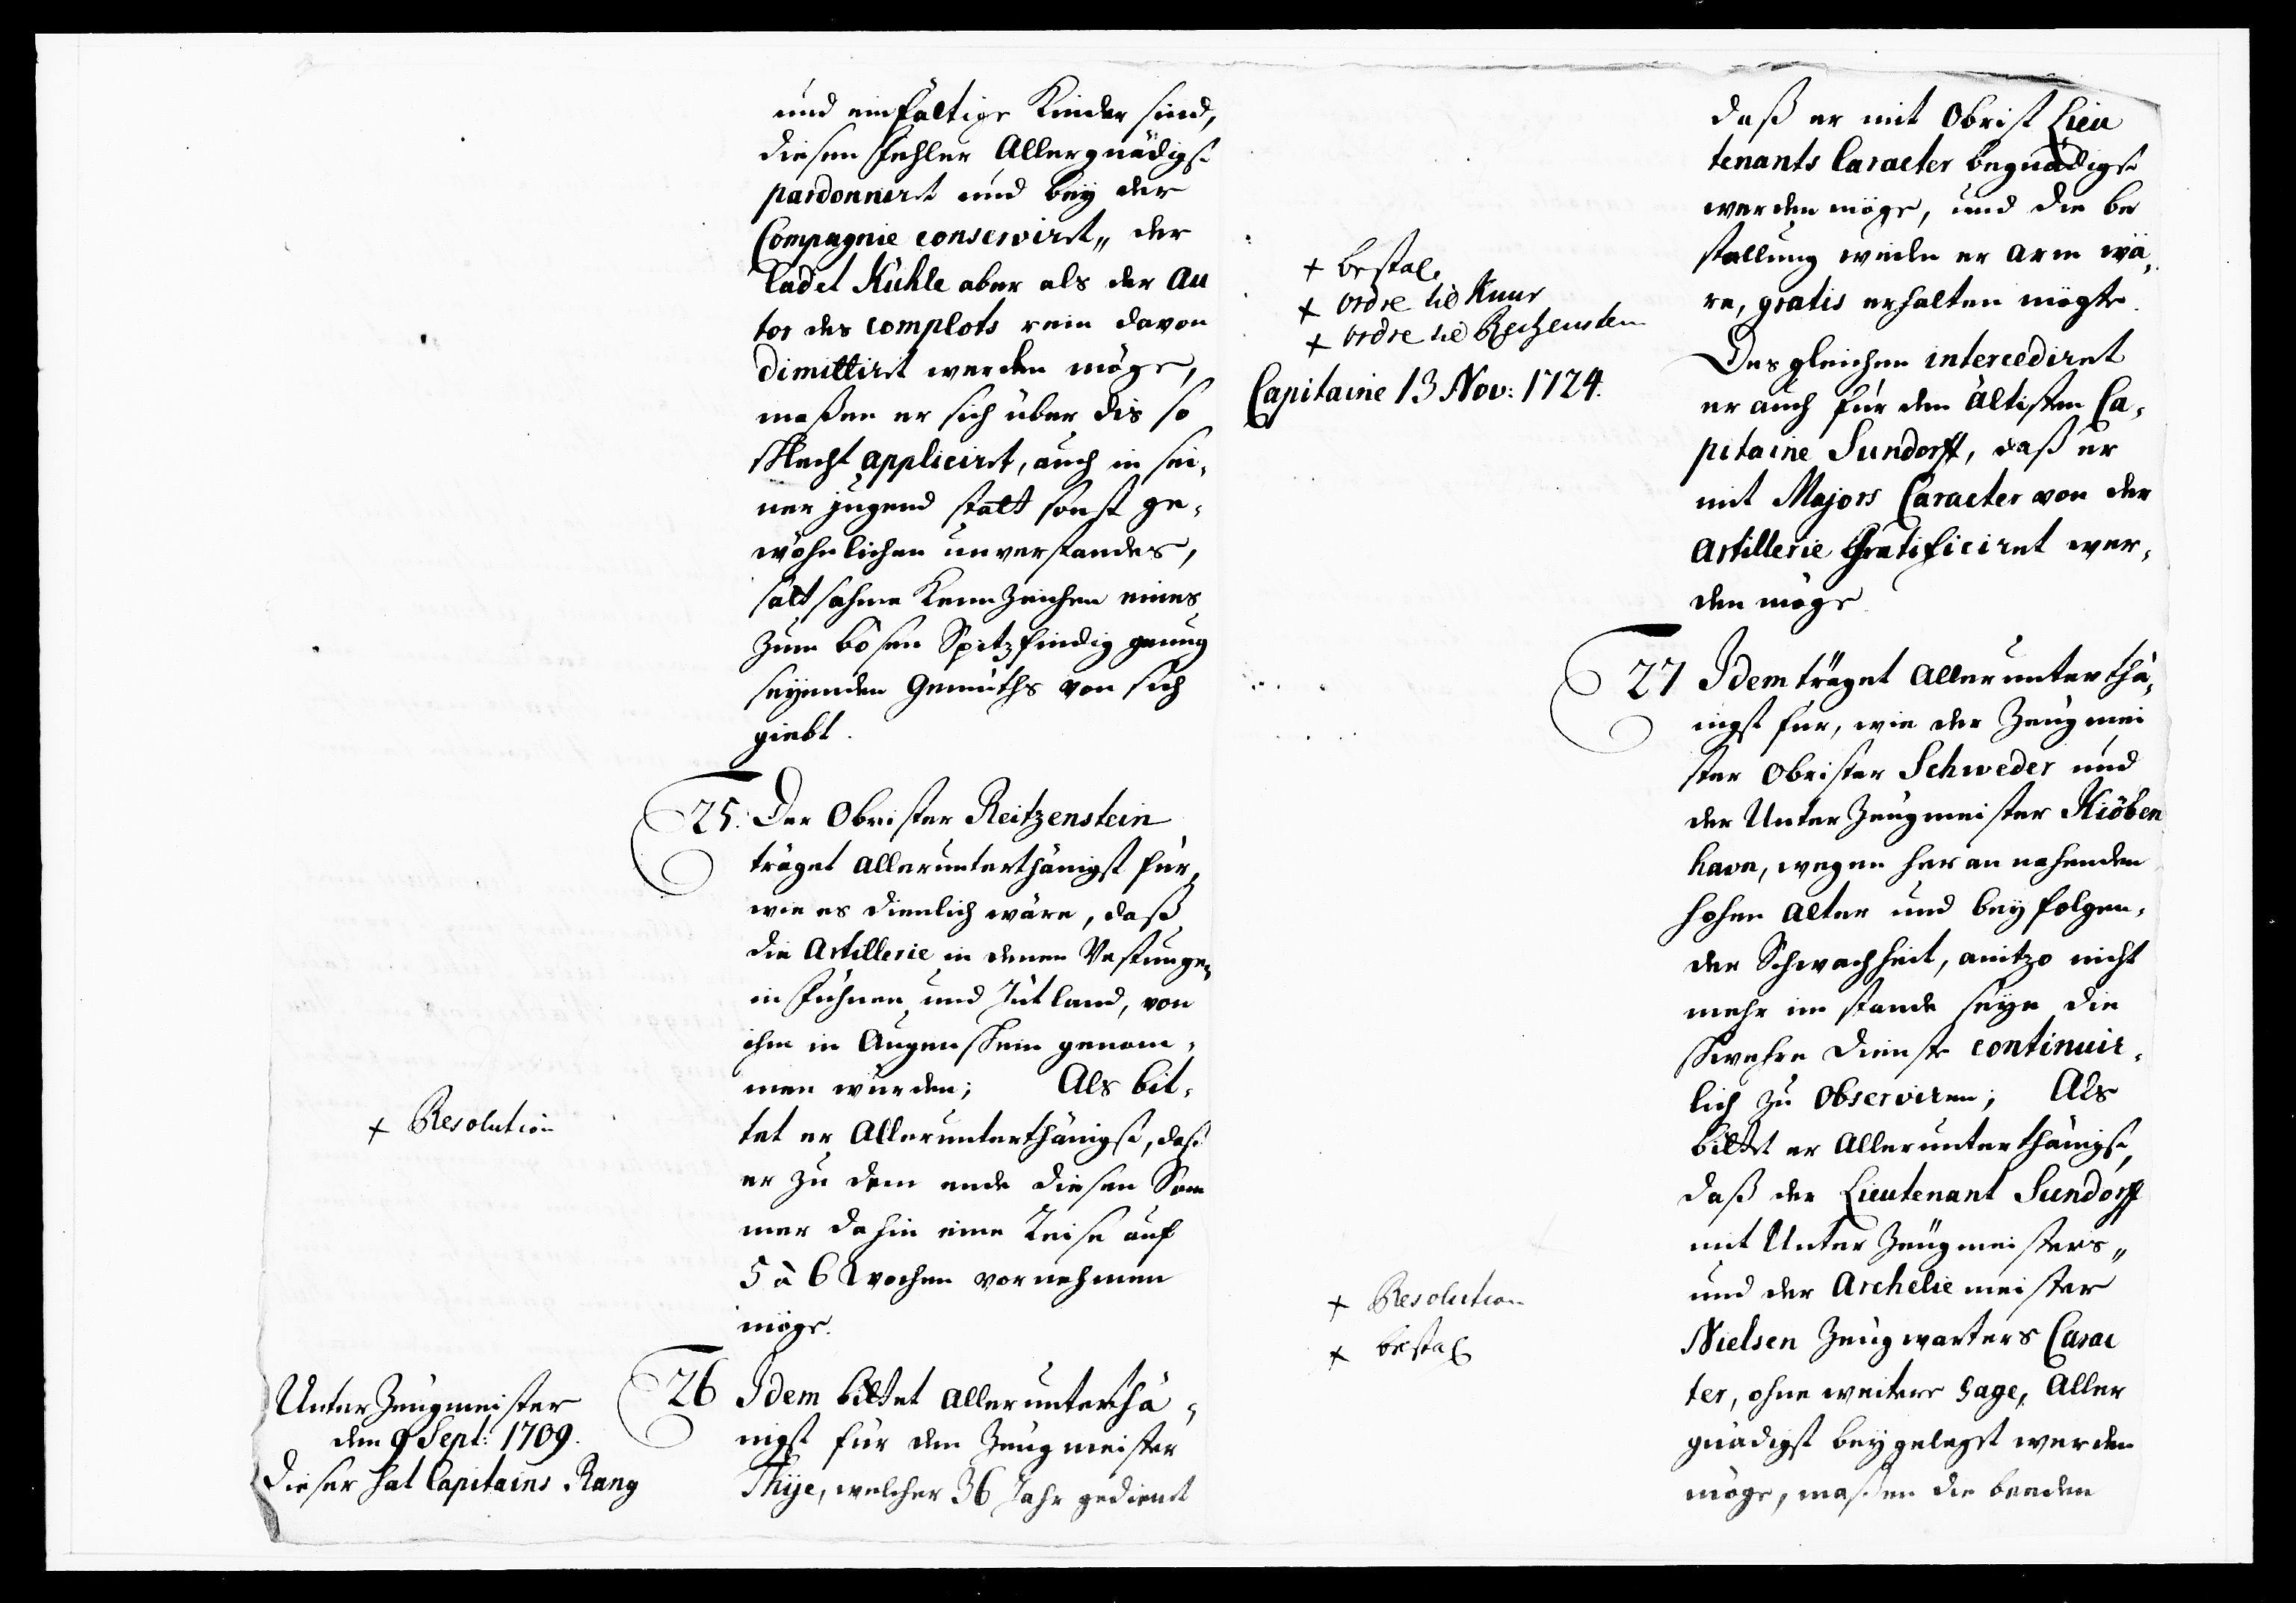 und einfältige Kinder sind,
diesen Fehler Allergnädigst
pardonniret und bey der
Compagnie conserviret„ der
Cadet Kühle aber als der Au
tor des complots rein davon
dimittiret werden möge,
maßen er sich über dis so
schlecht appliciret, auch in sei,
ner jugend statt sonst ge,
wöhnlichen unverstandes,
saltsahme Kennzeichen eines
zum bösen Spitzfindig genug
seyenden Gemüths von sich
giebt.
25. Der Obrister Reitzenstein
träget allerunterthänigst für,
wie es dienlich wäre, daß
die Artillerie in denen Vestungen
in Fühnen und Jütland, von
ihm in Augenschein genom,
men würden; Als bit,
tet er Allerunterthänigst, daß
er zu dem ende diesen Som
mer dahin eine Reise auf
5 à 6 Wochen vornehmen
möge.
+ Resolution
26 Idem bittet allerunterthä,
nigst für den Zeugmeister
Thije, welcher 36 Jahr gedienet
Unter Zeugmeister
den 9 Sept: 1709.
dieser hat Capitains Rang
daß er mit Obrist Lieu
tenants Caracter begnädigst
werden möge, und die be
stallung weilen er arm wä,
re, gratis erhalten mögte.
Desgleichen intercediret
er auch für den ältisten Ca,
pitaine Sundorff, daß er
mit Majors Caracter von der
Artillerie Gratificiret wer,
den möge.
+ bestal.
+ ordre til Knur
+ ordre til Reitzenstein
Capitaine 13 Nov: 1724.
27 Idem träget allerunterthä,
nigst für, wie der Zeugmei
ster Obrister Schweder und
der Unter Zeugmeister Kiöben
havn, wegen herannahenden
hohen alter und beyfolgen,
der Schwachheit, anitzo nicht
mehr im stande seye die
schwehre Dienste continuir,
lich zu observiren; Als
bittet er Allerunterthänigst,
daß der Lieutenant Sundorff
mit Unter Zeugmeisters„
und der Archelie meister
Nielsen Zeugwarters Carac
ter, ohne weitere gage, Aller
gnädigst beygeleget werden
möge, maßen die beeden
+ Resolution
+ bestal